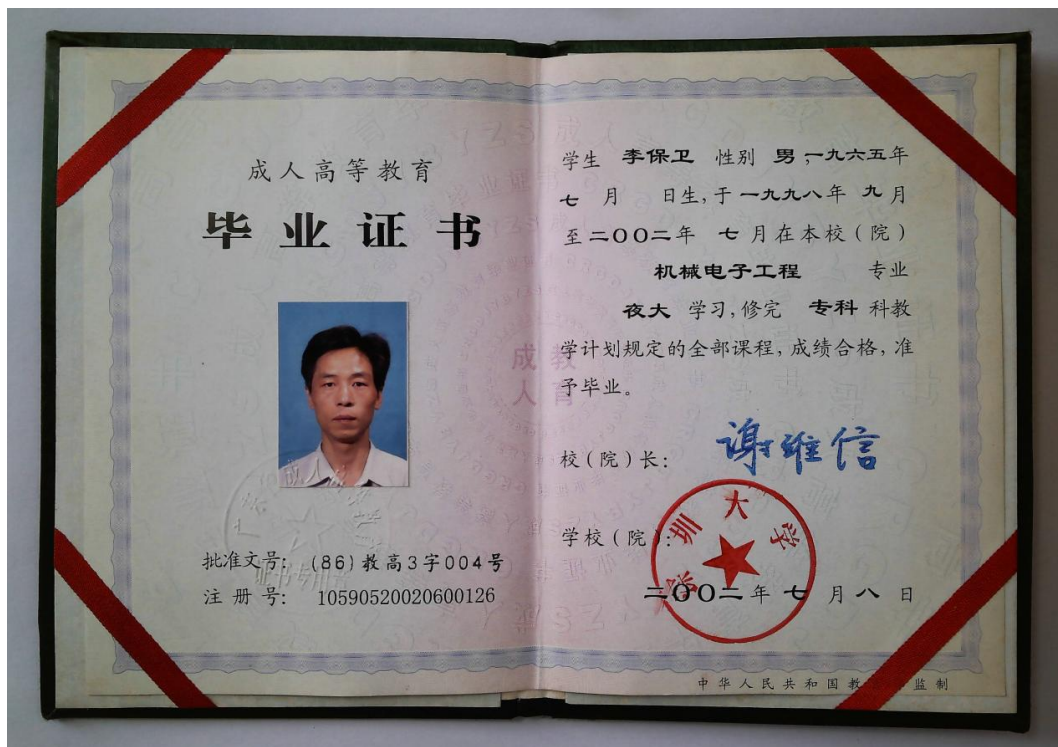 成人高等教育
毕业证书
批准文号: (86)教高3字004号
注 册 号: 10590520020600126
学生 李保卫 性别 男,一九六五年
七 月 日生,于一九九八年 九月
至二〇〇二年 七月在本校(院)
机械电子工程 专业
夜大 学习,修完 专科 科教
学计划规定的全部课程,成绩合格,准
予毕业。
校(院)长: 谢维信
学校(院):
深圳大学
二〇〇二年 七 月 八 日
中华人民共和国教 监制
成教
人育
证书专用章